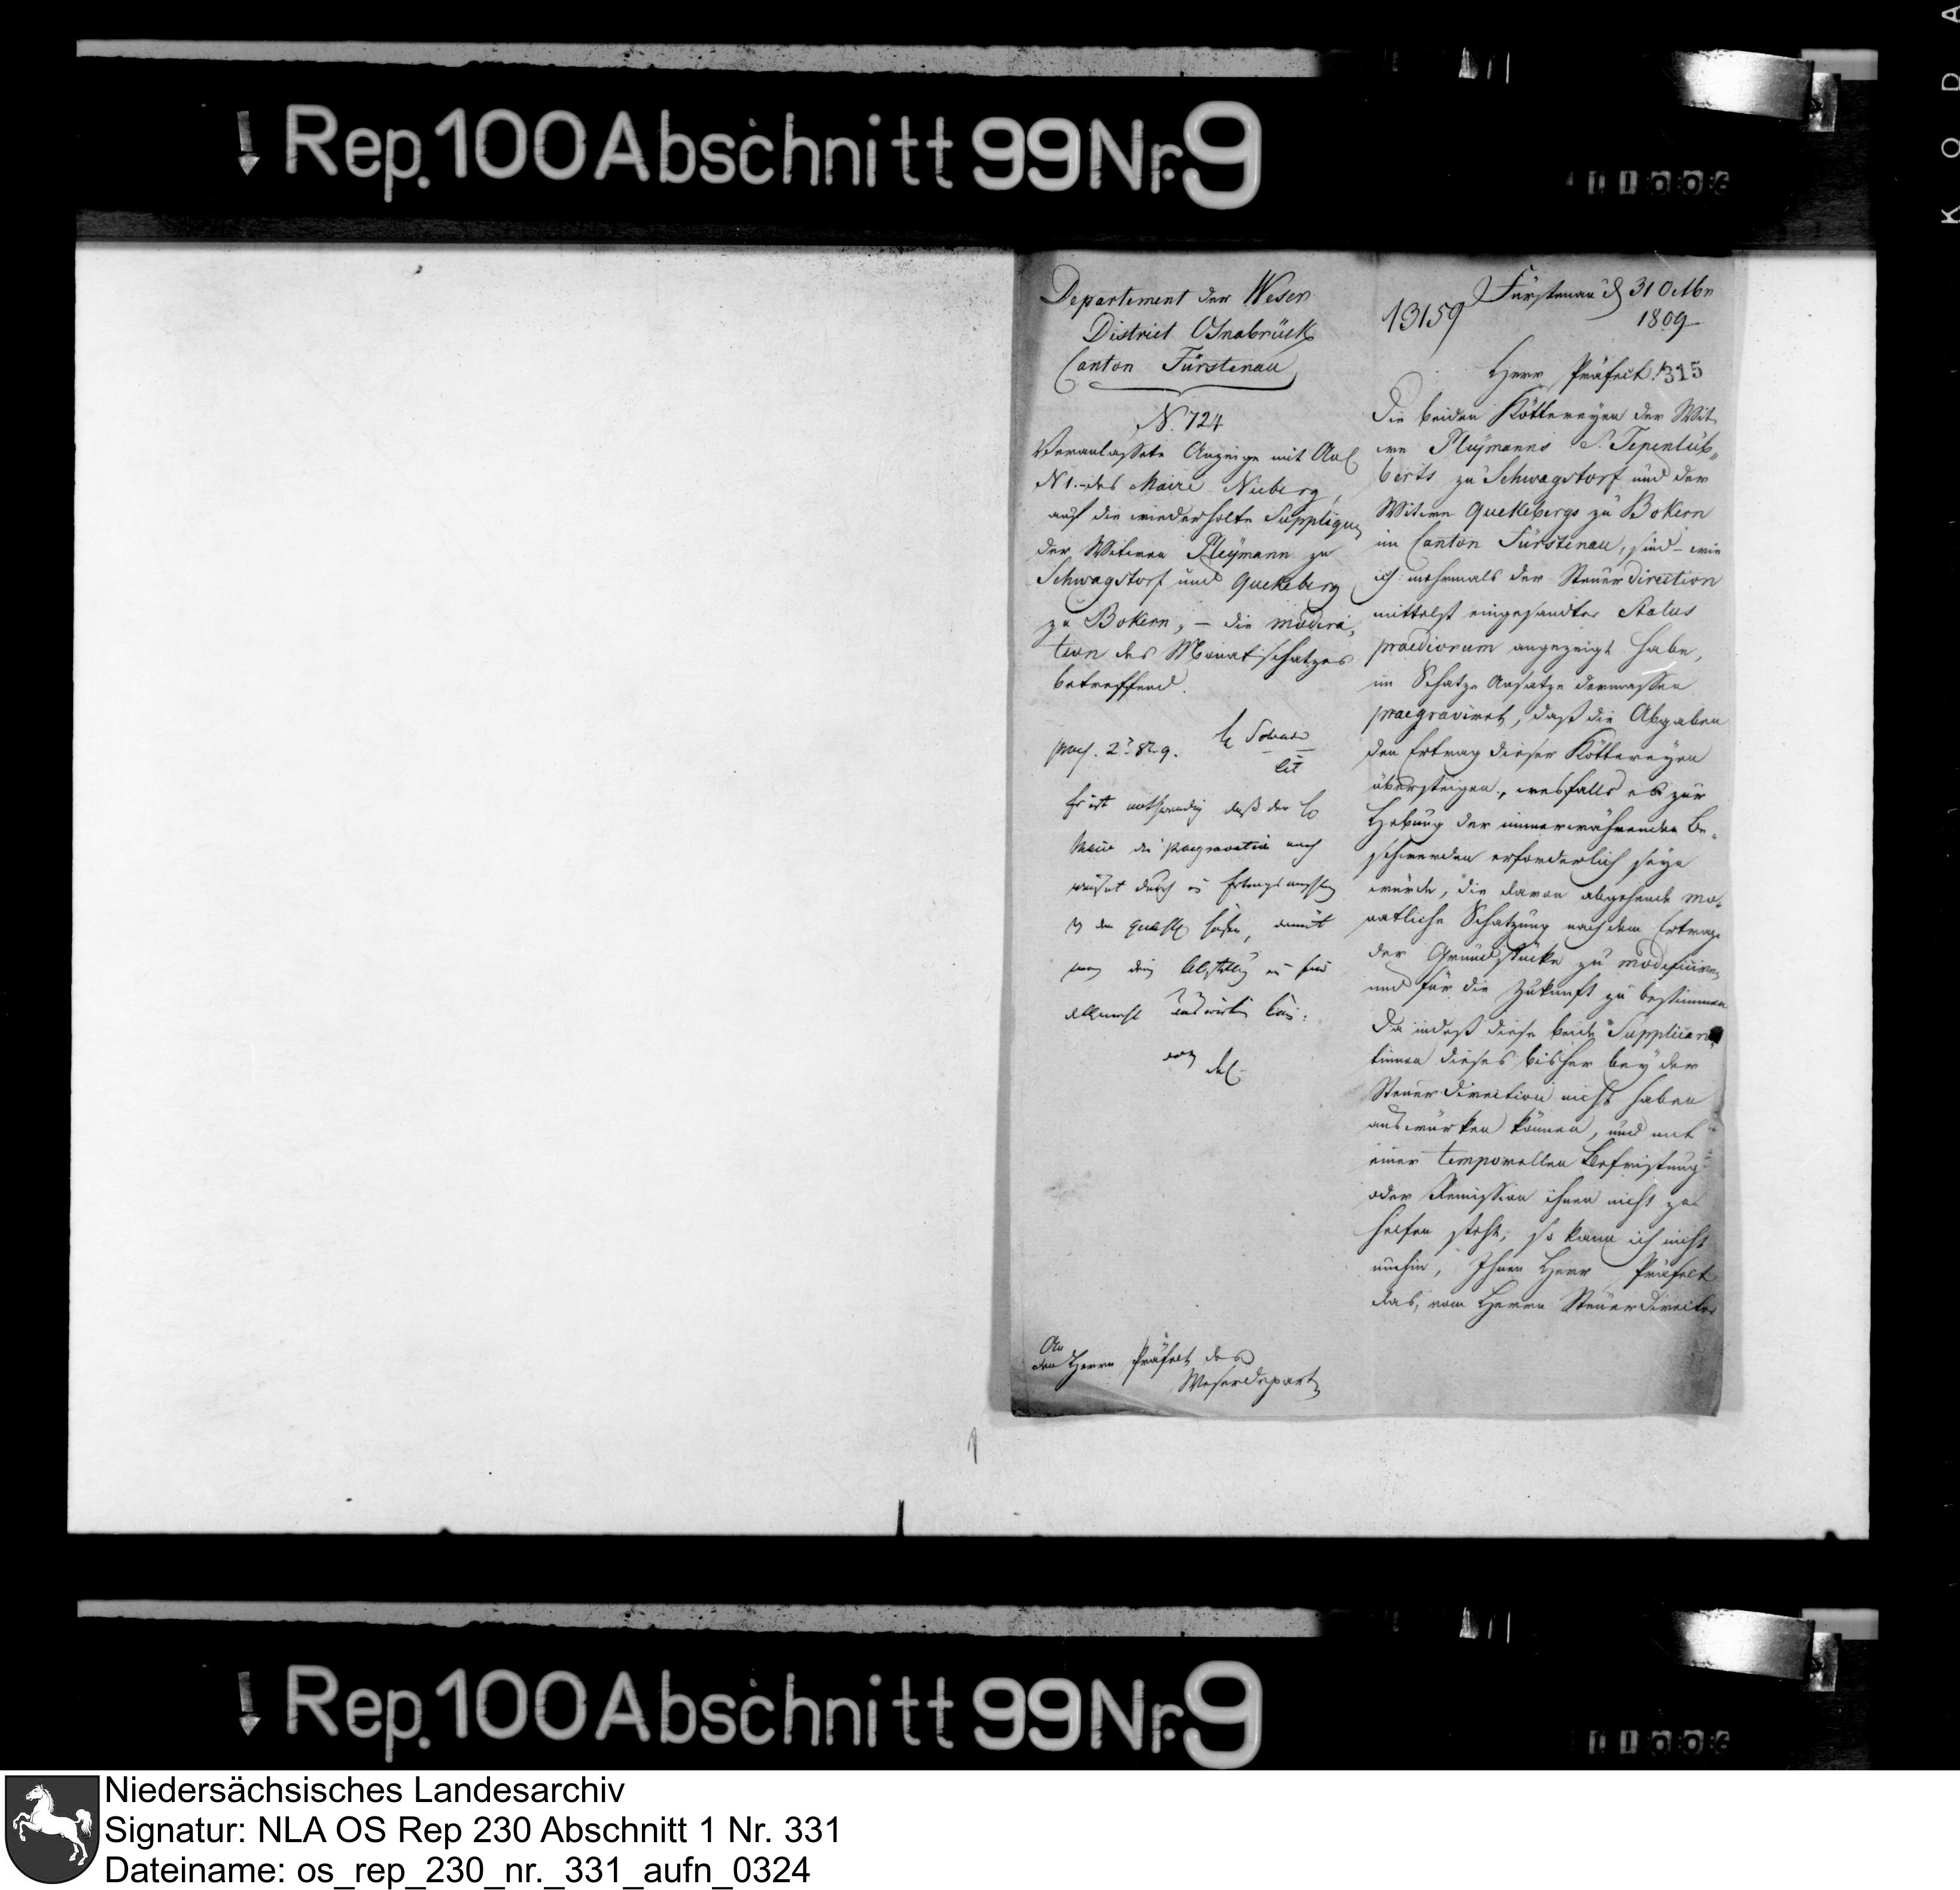 Rep. 100 Abschnitt 99 Nr. 9
KODA
Departement der Weser
District Osnabrück
Canton Fürstenau
N. 724
Veranlassete Anzeige mit Anl
N 1. des Maire Nieberg,
auf die wiederholte Supplique
der Witwen Pluymann zu
Schwagstorf und Quekeberg
zu Bokern, – die modera,
tion des Monatschatzes
betreffend.
Es ist nothwendig daß der
Maire die praegravation nach
damit
An
den Herrn Präfect des
Weserdepart
Fürstenau d 31 Octbr
1809
13159
Herr Präfect! 315
Die beiden Köttereyen der Wit
we Pluymanns S. Tepenlüb,
berts zu Schwagstorf und der
Witwe Quekebergs zu Bokern
im Canton Fürstenau, sind – wie
ich mehrmals der Steuerdirection
mittelst eingesandter Status
praediorum angezeigt habe,
im Schatz Ansatze dermassen
praegraviret, daß die Abgaben
den Ertrag dieser Köttereyen
übersteigen, wesfalls es zur
Hebung der immerwährenden Be,
schwerden erforderlich seyn
würde, die davon abgehende mo,
natliche Schatzung nach dem Ertrage
der Grundstücke zu modificiren,
und für die Zukunft zu bestimmen
Da indeß diese beide Supplican
tinnen dieses bisher bey der
Steuerdirection nicht haben
auswürken können, und mit
einer temporellen Befristung
oder Remission ihnen nicht zu
helfen steht; so kann ich nicht
umhin, Ihnen Herr Präfect
das, vom Herrn Steuerdirector
Rep. 100 Abschnitt 99 Nr. 9
Niedersächsisches Landesarchiv
Signatur: NLA OS Rep 230 Abschnitt 1 Nr. 331
Dateiname: os_rep_230_nr._331_aufn_0324